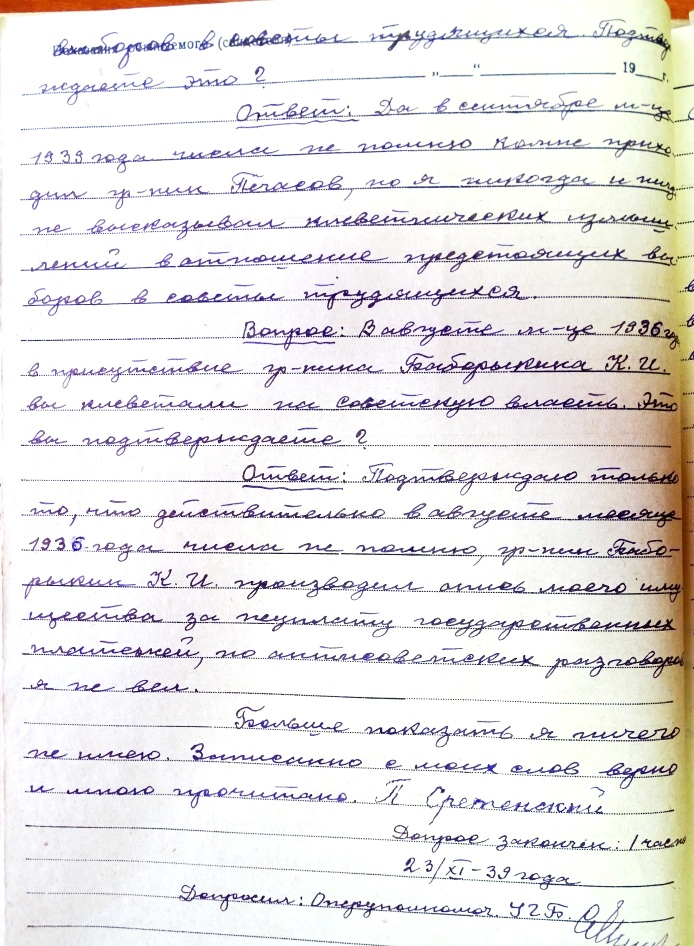 выборов в советы трудящихся. Подтвер
ждаете это? „___“ 19 г.
Ответ: Да в сентябре м-це
1939 года числа не помню ко мне прихо
дил гр-нин Печасов, но я никогда и
не высказывал клеветнических измыш
лений в отношение предстоящих вы
боров в советы трудящихся.
Вопрос: В августе м-це 1936 год
в присутствие гр-нина Баборыкина К.И.
вы клеветали на советскую власть. Это
вы подтверждаете?
Ответ: Подтверждаю только
то, что действительно в августе месяце
1936 года числа не помню, гр-нин Бабо-
рыкин К.И. производил опись моего иму
щества за неуплату государственных
платежей, но антисоветских разговоров
я не вел.
Больше показать я ничего
не имею. Записанно с моих слов верно
и мною прочитано. П Сретенский
Допрос закончен: 1 час
23/XI-39 года
Допросил: Оперуполномоч. УГБ.